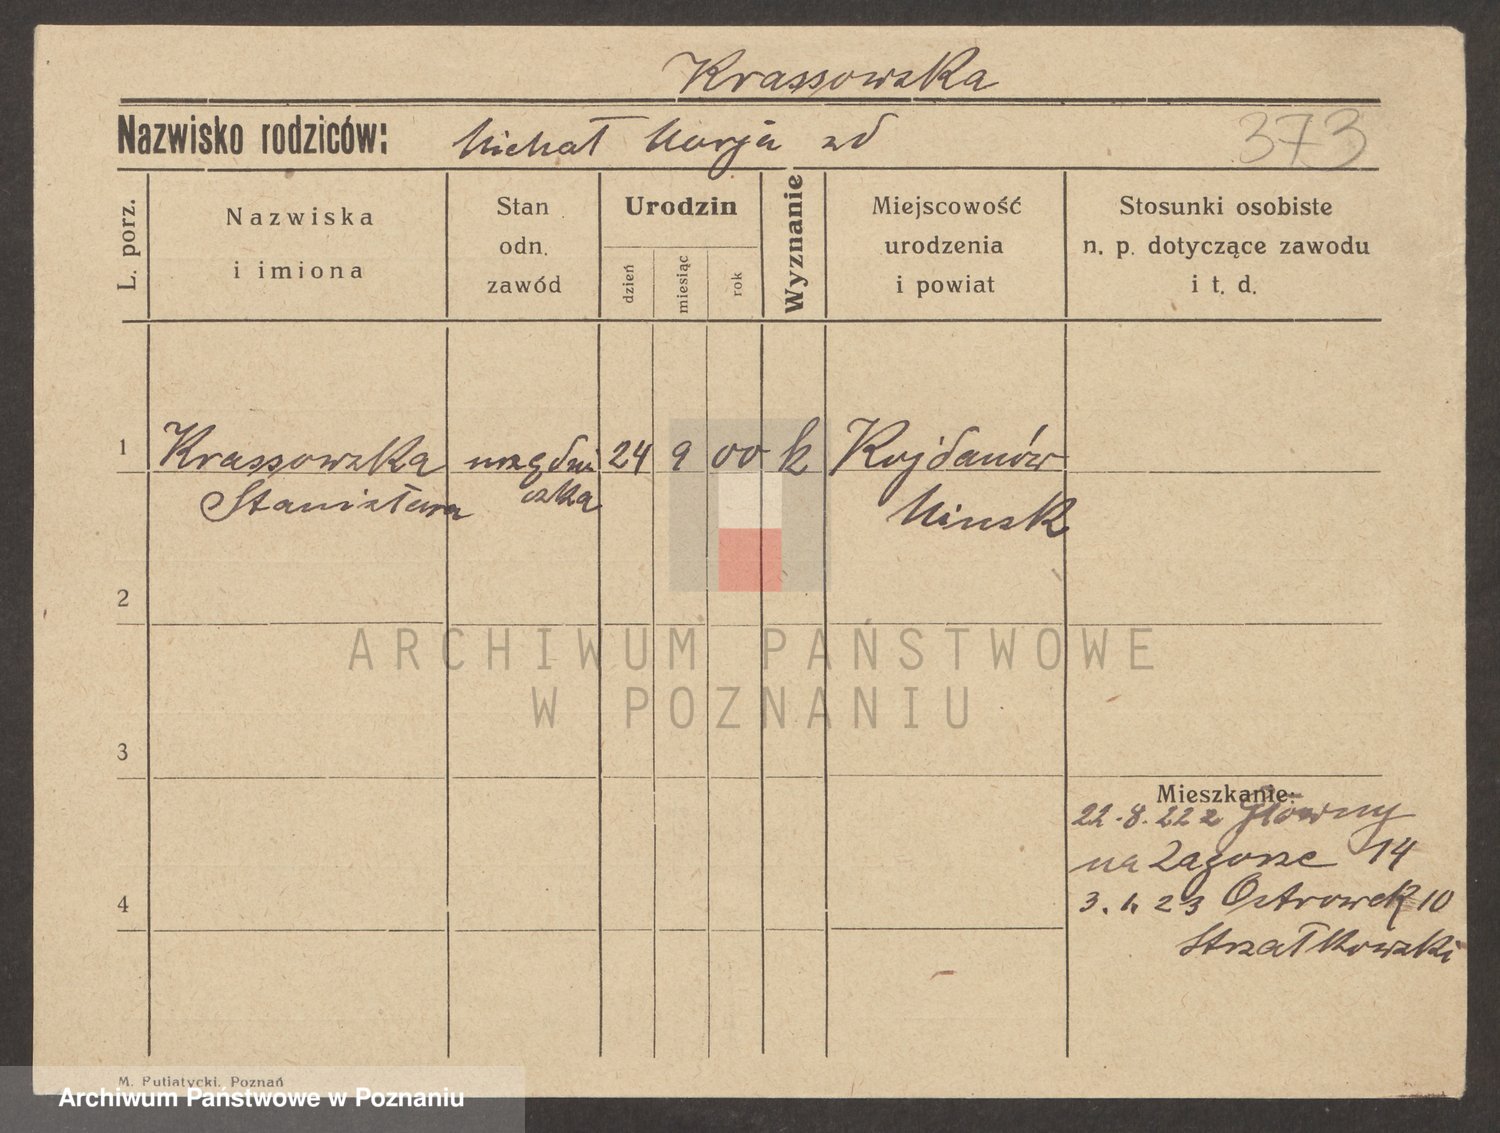 Krassowska
Nazwisko rodziców: Michał Marja zd
373
L. porz.
Nazwiska
i imiona
Stan
odn.
zawód
Urodzin
dzień
miesiąc
rok
Wyznanie
Miejscowość
urodzenia
i powiat
Stosunki osobiste
n. p. dotyczące zawodu
i t. d.
1 Krassowska urzędni 24 9 00 k Kojdanów
Stanisława czka Minsk
2
ARCHIWUM PAŃSTWOWE
W POZNANIU
3
Mieszkanie:
22.8.22 z Główny
na Zagorze 14
4
3. 1. 23 Ostrowek 10
Strzałkowski
M. Putiatycki, Poznań
Archiwum Państwowe w Poznaniu